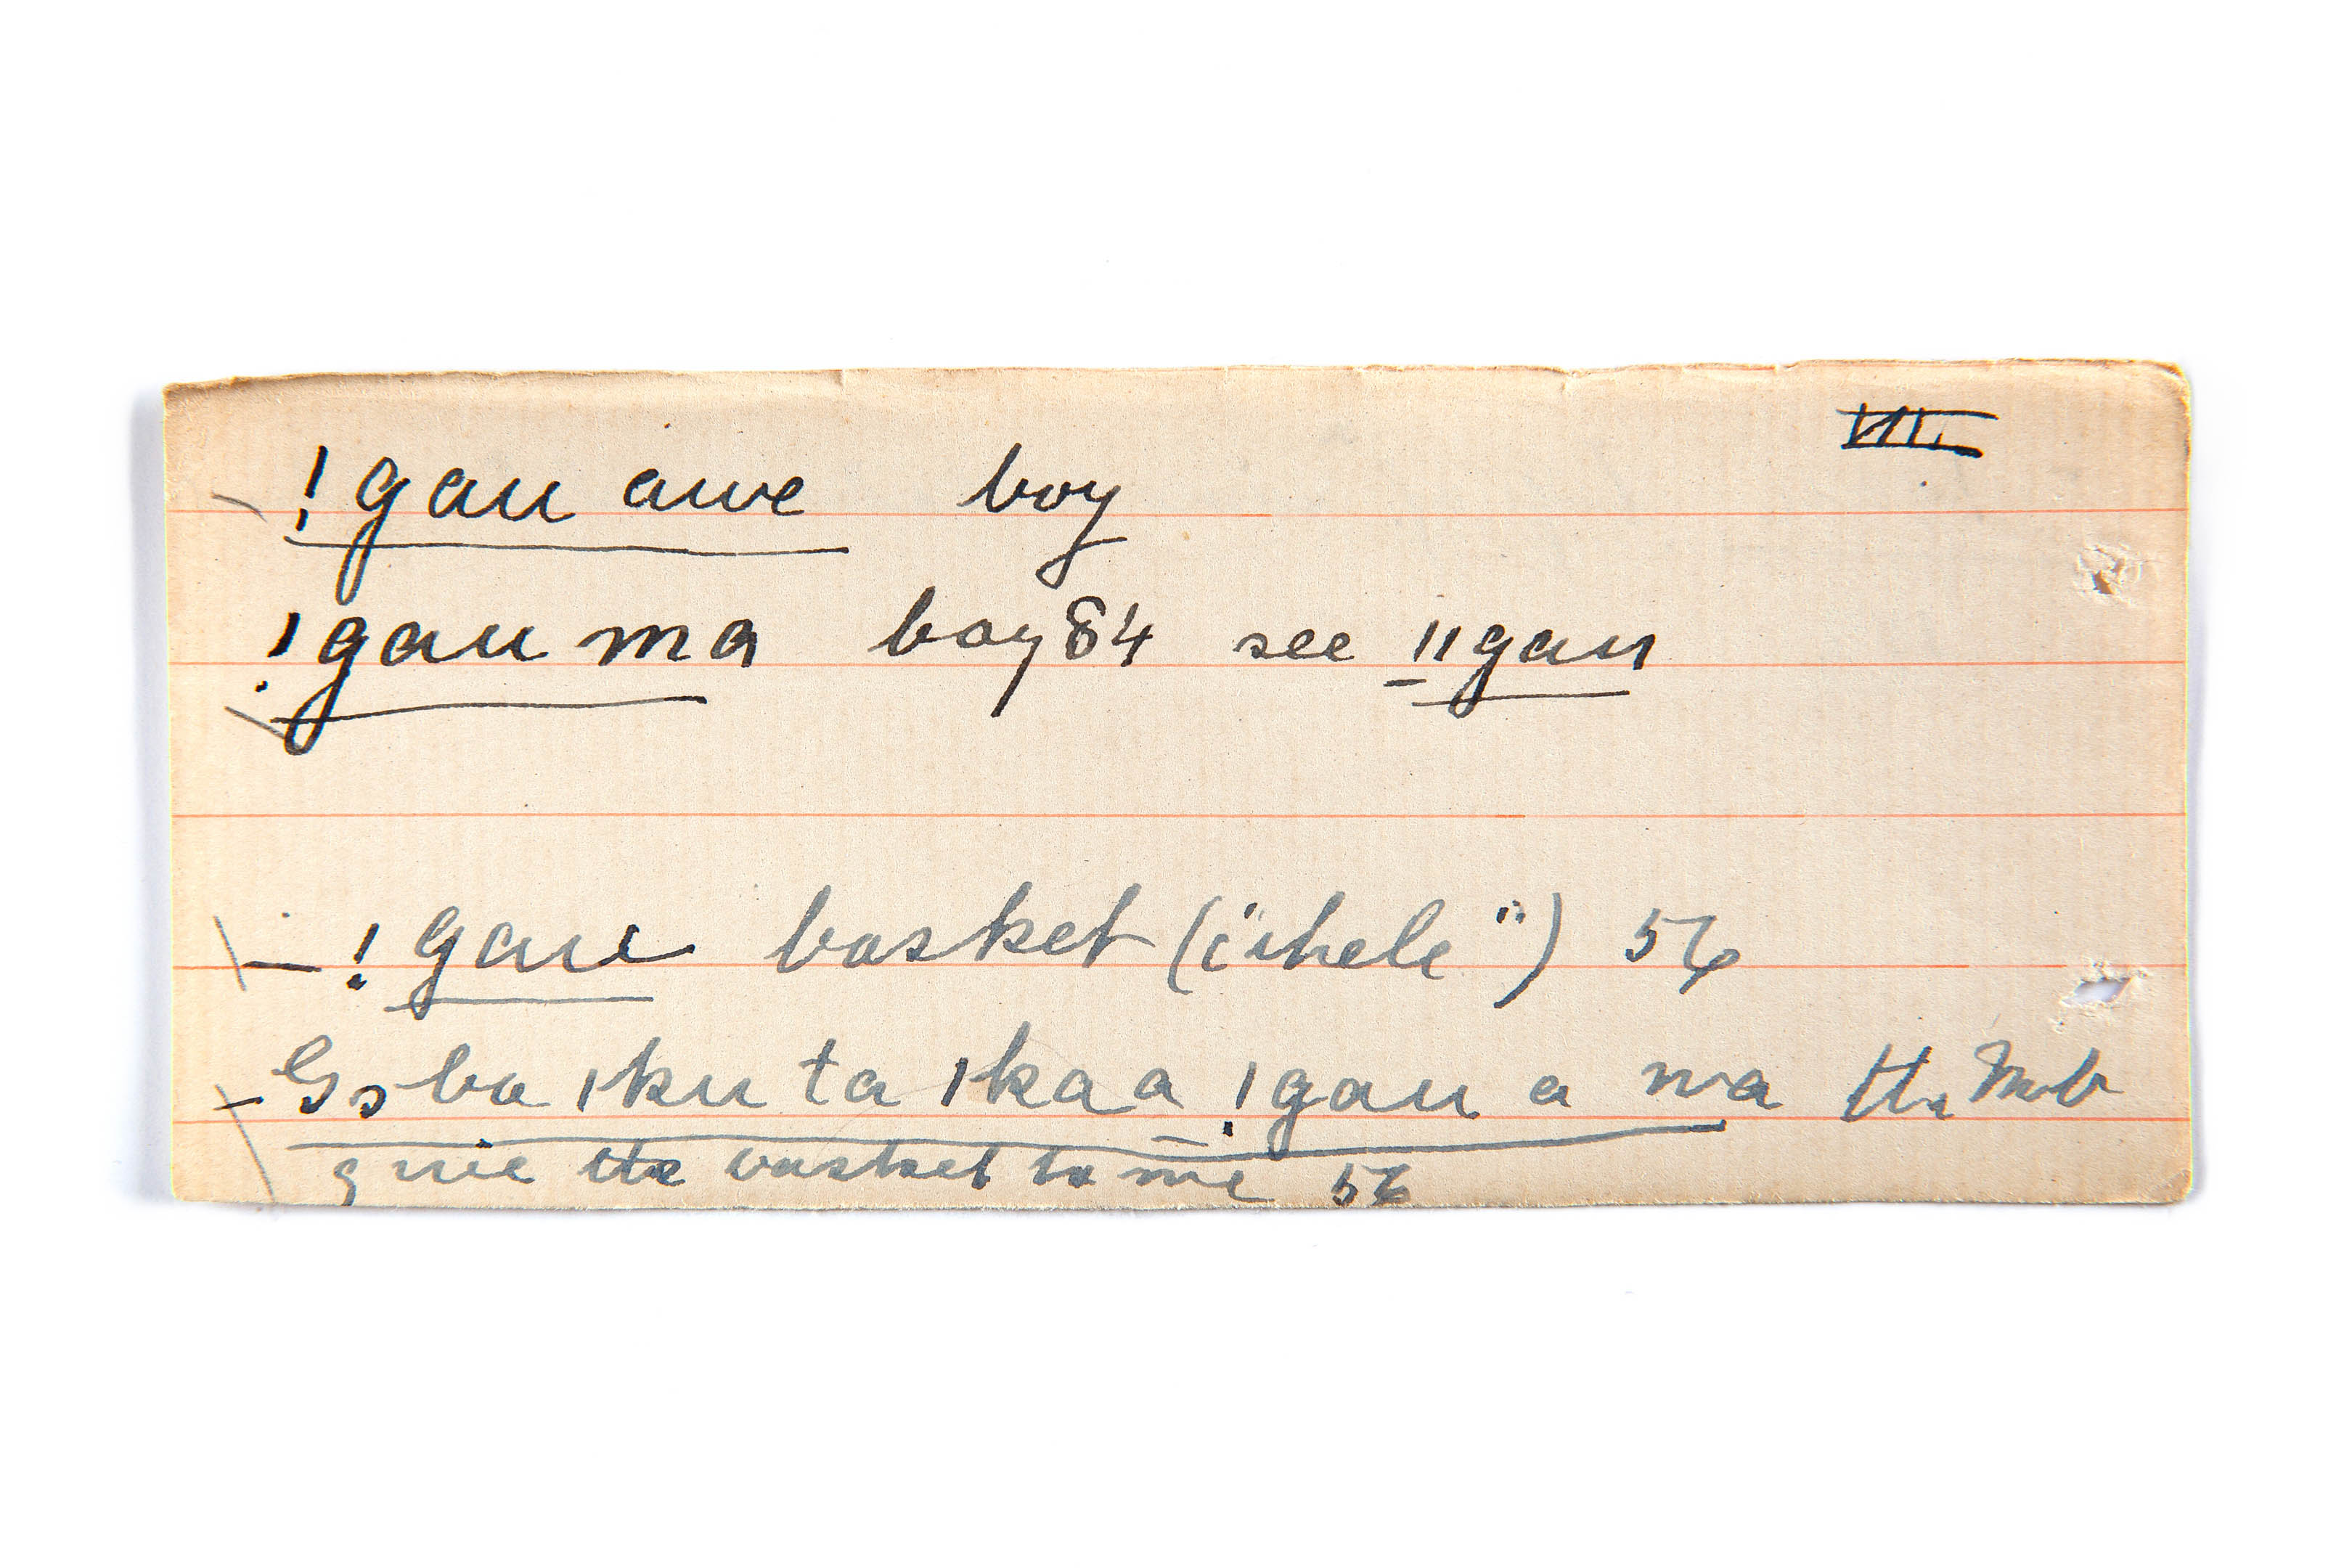 VII.
!gau awe boy
!gau ma boy 84 see ǁgau
!gau basket ("ihele") 56
ba ǀku ta ǀka a !gau a wa
give the basket to me 56